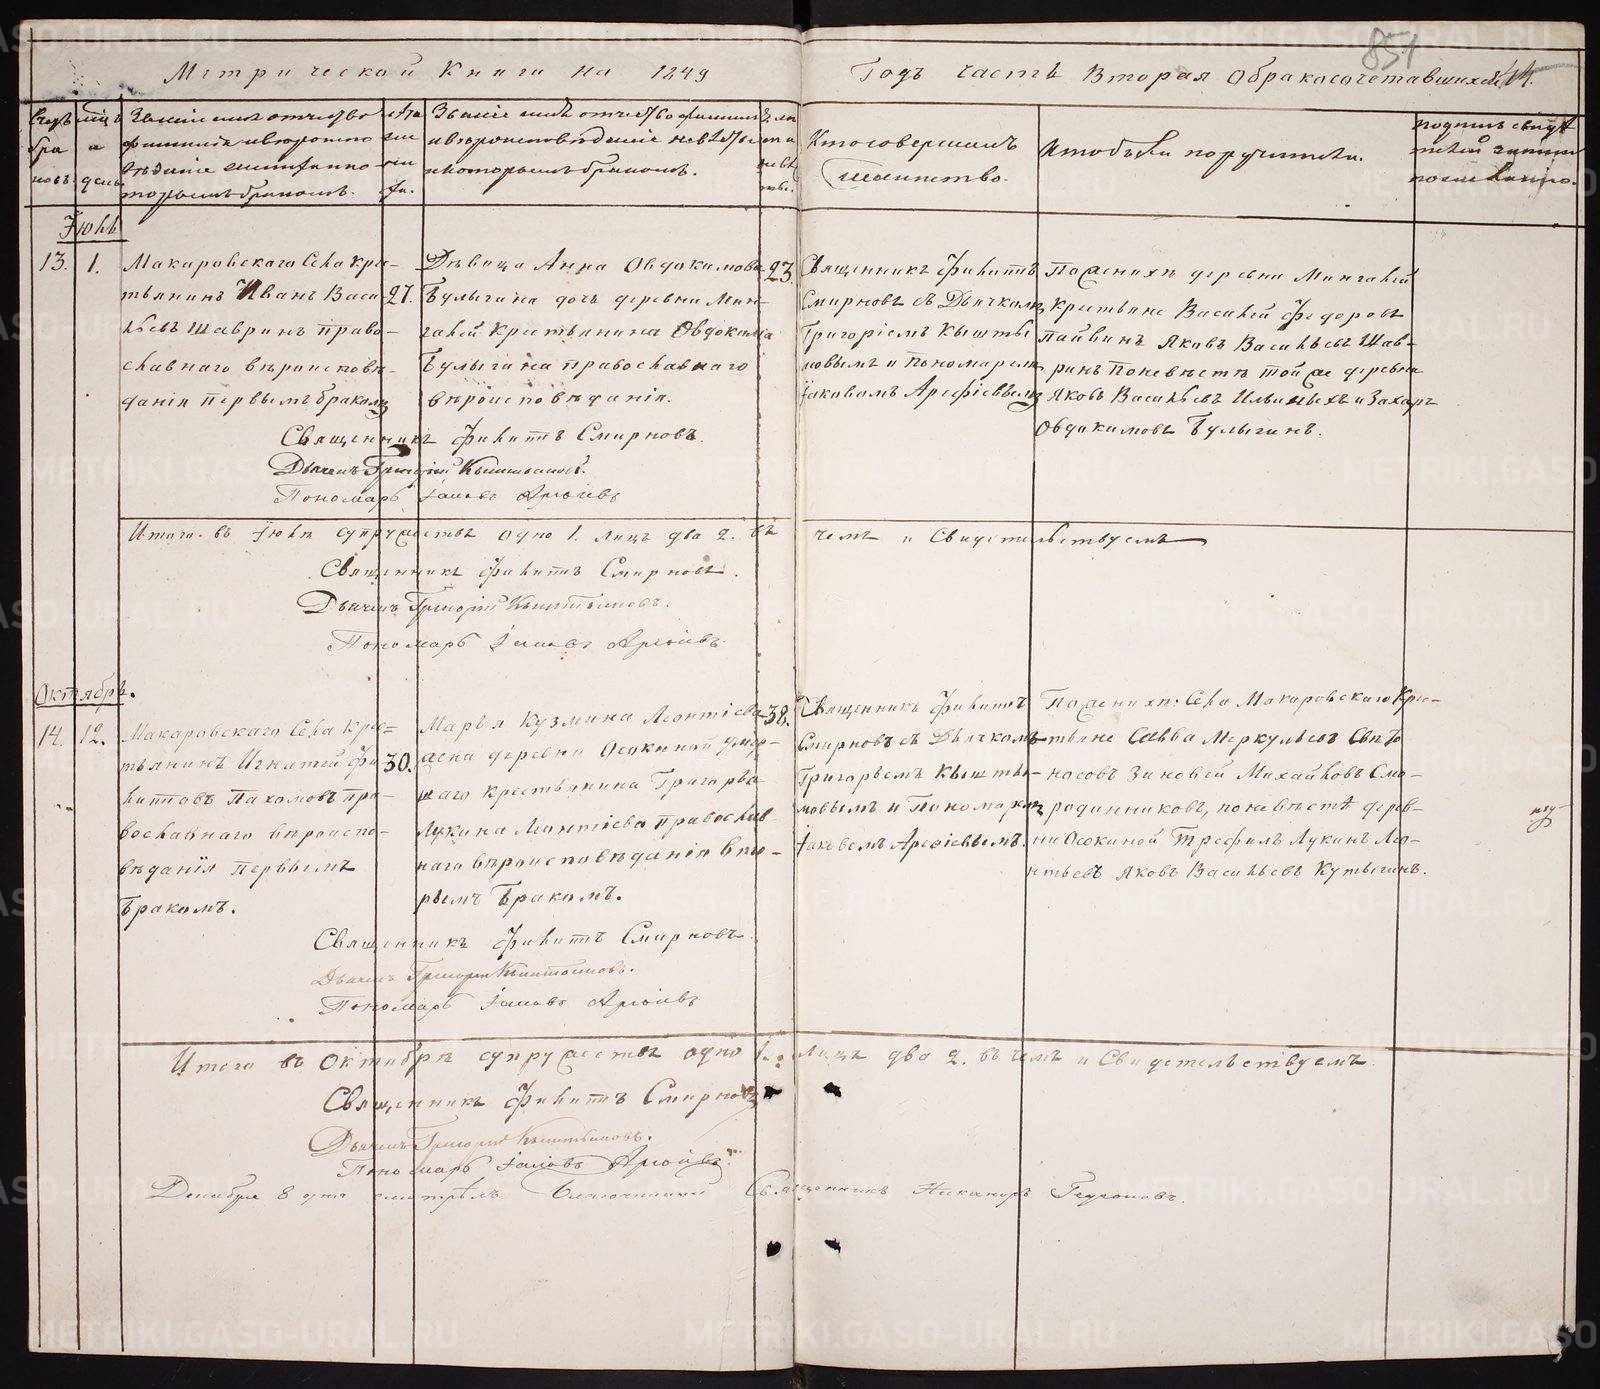 851
Метрической Книги на 1849
Годъ часть Вторая О бракосочетавшихся
Счетъ браковъ
Мѣсяцъ и день
Званіе имя отчество
фамилія и вероиспо
вѣданіе жениха и ко
торымъ бракомъ.
Лѣта жениха.
Званіе имя отчество фамилія
и вероисповѣданіе невѣсты
и которымъ бракомъ.
Лѣта невѣсты.
Кто совершалъ
таинство.
Кто были поручители.
Іюль
13.
1.
Макаровскаго Села кре-
стьянинъ Иванъ Васи
льевъ Шавринъ право-
славнаго вѣроисповѣ-
данія первымъ бракомъ
27.
Дѣвица Анна Овдокимова
Булыгина дочь деревни Мин-
галей крестьянина Овдокима
Булыгина православнаго
вѣроисповѣданія.
23.
Священникъ Филиппъ
Смирновъ съ Дьячкомъ
Григоріемъ Кышты
мовымъ и пономаремъ
Іаковомъ Арефіевымъ
По женихѣ деревни Мингалей
крестьяне Василей Федоровъ
Пайвинъ Яковъ Васильевъ Шав-
ринъ по невѣстѣ той же деревни
Яковъ Васильевъ Ильиныхъ и Захаръ
Овдакимовъ Булыгинъ.
Священникъ Филиппъ Смирновъ.
Дьячекъ Григорій Кыштымовъ.
Пономарь Іаковъ Арефіевъ
Итого въ Іюлѣ супружествъ одно 1. лицъ два 2. въ
чемъ и Свидетельствуемъ
Священникъ Филиппъ Смирновъ.
Дьячекъ Григорій Кыштымовъ.
Пономарь Іаковъ Арефіевъ
Октябрь.
14.
12.
Макаровскаго Села кре-
стьянинъ Игнатей Фи
липповъ Пахомовъ пра-
вославнаго вѣроиспо-
вѣданія первымъ
бракомъ.
30.
Марья Кузмина Леонтіева
жена деревни Осокиной умер-
шаго крестьянина Григорья
Лукина Леонтіева православ
наго вѣроисповѣданія вто-
рымъ бракомъ.
38.
Священникъ Филиппъ
Смирновъ съ Дьячкомъ
Григорьемъ Кышты-
мовымъ и Пономаремъ
Іаковомъ Арефіевымъ.
По женихѣ: Села Макаровскаго Кре-
стьяне Савва Меркульевъ Свѣто
носовъ Зиновей Михайловъ Смо-
родинниковъ, по невѣстѣ дерев-
ни Осокиной Трефилъ Лукинъ Ле-
онтьевъ Яковъ Васильевъ Кутыгинъ.
Священникъ Филиппъ Смирновъ
Дьячекъ Григорій Кыштымовъ.
Пономарь Іаковъ Арефіевъ
Итого въ Октябрѣ супружествъ одно 1. лицъ два 2. въ чемъ и Свидетельствуемъ.
Священникъ Филиппъ Смирновъ
Дьячекъ Григорій Кыштымовъ.
Пономарь Іаковъ Арефіевъ.
Декабря 8 дня смотрѣлъ Благочинный Священникъ Никаноръ
METRIKI.GASO-URAL.RU